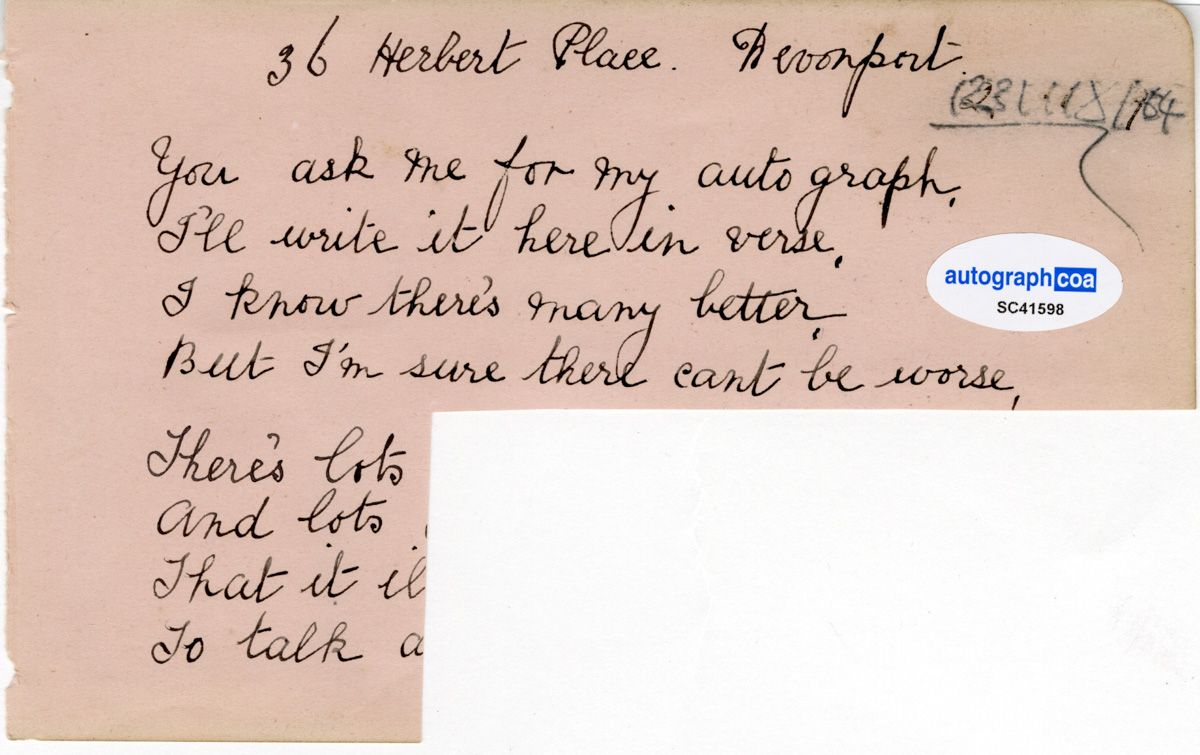 36 Herbert Place. Devonport.
You ask me for my autograph,
I'll write it here in verse,
I know there's many better,
But I'm sure there cant be worse,
autographcoa
SC41598
There's lots
And lots
That it
To talk